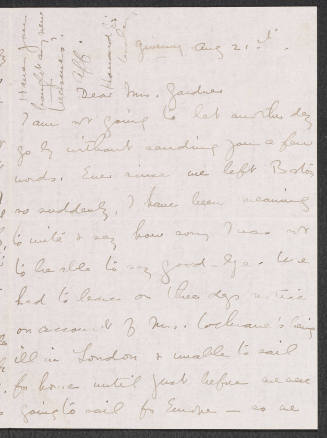 Aug 21st.
Dear Mrs. Gardner
I am not going to let another day
go by without sending you a few
words. Ever since we left Boston
so suddenly, I have been meaning
to write & say how sorry I was not
to be able to say good-bye. We
had to leave on three days notice
on account of Mrs. Cochrane's being
ill in London & unable to sail
for home until just before we are
going to sail for Europe — so we
Have you
bought any new